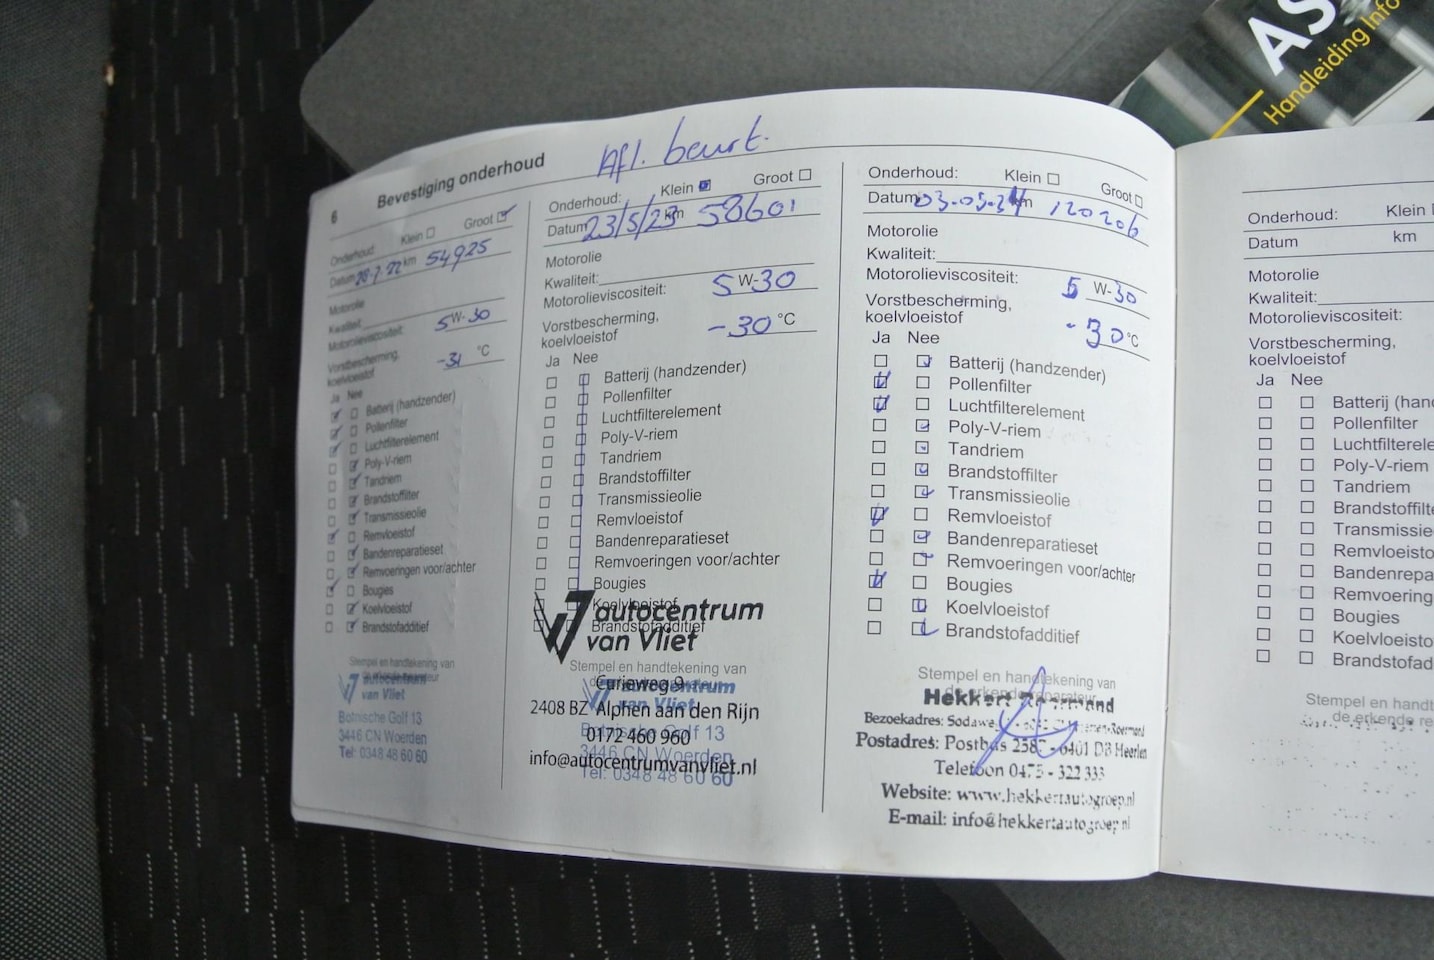 AS
Handleiding Info
6 Bevestiging onderhoud
Afl. beurt.
Onderhoud: Klein Groot
Datum 28-7-22 km 54925
Motorolie
Kwaliteit:
Motorolieviscositeit: 5 W-30
Vorstbescherming,
koelvloeistof -31 °C
Ja Nee
Batterij (handzender)
Pollenfilter
Luchtfilterelement
Poly-V-riem
Tandriem
Brandstoffilter
Transmissieolie
Remvloeistof
Bandenreparatieset
Remvoeringen voor/achter
Bougies
Koelvloeistof
Brandstofadditief
Stempel en handtekening van
autocentrum
van Vliet
Botnische Golf 13
3446 CN Woerden
Tel: 0348 48 60 60
Onderhoud: Klein Groot
Datum 23/5/23 km 58601
Motorolie
Kwaliteit:
Motorolieviscositeit: 5 W-30
Vorstbescherming,
koelvloeistof -30 °C
Ja Nee
Batterij (handzender)
Pollenfilter
Luchtfilterelement
Poly-V-riem
Tandriem
Brandstoffilter
Transmissieolie
Remvloeistof
Bandenreparatieset
Remvoeringen voor/achter
Bougies
Koelvloeistof
Brandstofadditief
autocentrum
van Vliet
Stempel en handtekening van
Curieweg 9
autocentrum
van Vliet
2408 BZ Alphen aan den Rijn
Botnische Golf 13
0172 460 960
3446 CN Woerden
info@autocentrumvanvliet.nl
Tel: 0348 48 60 60
Onderhoud: Klein Groot
Datum 03-05-24 km 120206
Motorolie
Kwaliteit:
Motorolieviscositeit: 5 W-30
Vorstbescherming,
koelvloeistof -30 °C
Ja Nee
Batterij (handzender)
Pollenfilter
Luchtfilterelement
Poly-V-riem
Tandriem
Brandstoffilter
Transmissieolie
Remvloeistof
Bandenreparatieset
Remvoeringen voor/achter
Bougies
Koelvloeistof
Brandstofadditief
Stempel en handtekening van
de erkende reparateur
Hekkert Roermond
Bezoekadres: Roermond
Postadres: Postbus 6401 DB Heerlen
Telefoon 0475 - 322 333
Website: www.hekkertautogroep.nl
E-mail: info@hekkertautogroep.nl
Onderhoud: Klein
Datum km
Motorolie
Kwaliteit:
Motorolieviscositeit:
Vorstbescherming,
koelvloeistof
Ja Nee
Batterij (hand
Pollenfilter
Luchtfilterele
Poly-V-riem
Tandriem
Brandstoffilte
Transmissie
Remvloeisto
Bandenrepa
Remvoering
Bougies
Koelvloeisto
Brandstofad
Stempel en handt
de erkende re